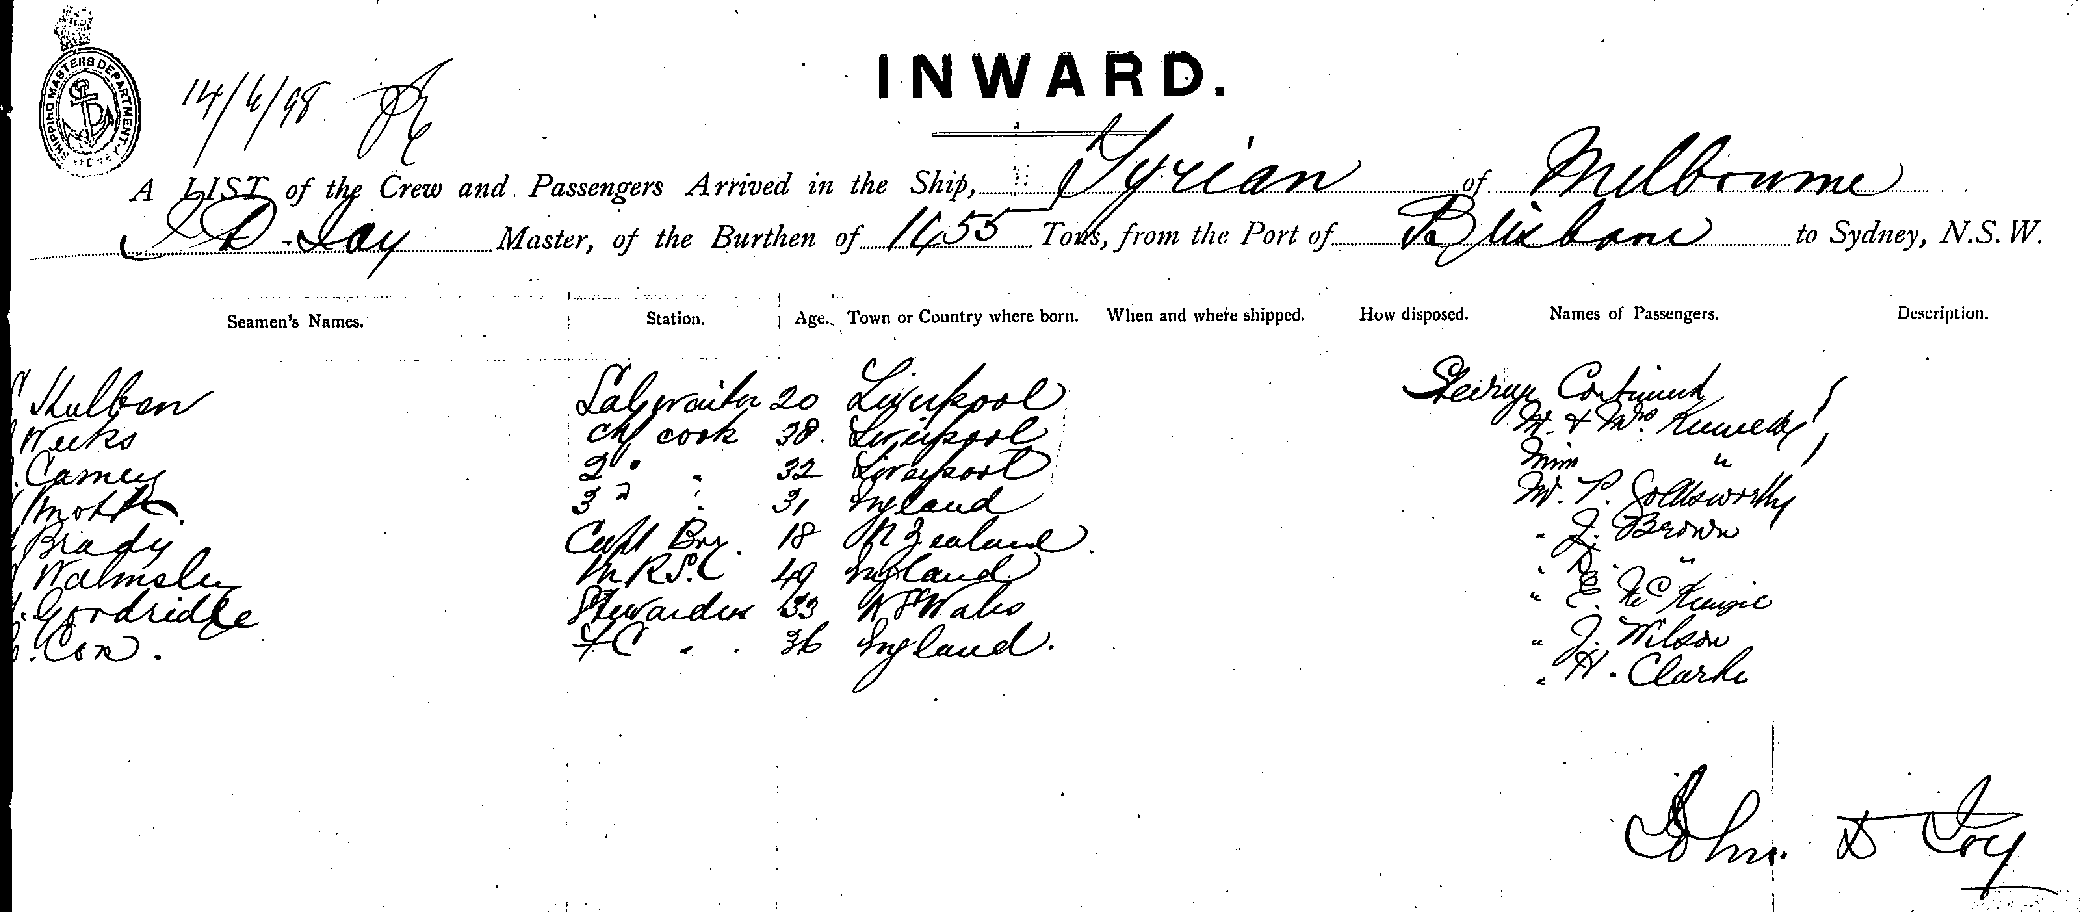 SHIPPING MASTERS DEPARTMENT
14/6/98
INWARD.
A LIST of the Crew and Passengers Arrived in the Ship, Tyrian of Melbourne
J D. Joy Master, of the Burthen of 1455 Tons, from the Port of Brisbane to Sydney, N.S.W.
Seamen's Names. Station. Age. Town or Country where born. When and where shipped. How disposed. Names of Passengers. Description.
Sal waiter 20 Liverpool Steerage Continued
Weeks Chf cook 38. Liverpool M. & Mrs Kennedy
Carney 2 " " 32 Liverpool Miss "
3d " 31 England Mr. P. Goldsworthy
Brady Capt Boy. 18 N Zealand. " J. Brown
Walmsley M.R.S.C 49 England " "
Goodridge Stewardess 33 N S Wales " E. McKenzie
C. Cox. FC " . 36 England. " J. Wilson
" H. Clarke
John D Joy